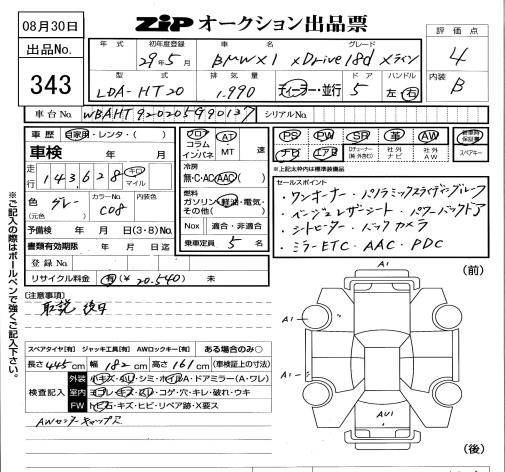 08月30日
ZIP オークション出品票
評価点
4
内装
B
出品No.
343
年式 初年度登録 車名 グレード
29年5月 BMW X1 xDrive18d xライン
型式 排気量 ドア ハンドル
LDA-HT20 1,990 ディーラー・並行 5 左・右
車台No. WBAHT920205G90137 シリアルNo.
車歴 自家用・レンタ・( )
車検 年 月
走行 143,628 キロ マイル
色 グレー (元色) カラーNo. C08 内装色
予備検 年 月 日(3・8)No.
書類有効期限 年 月 日迄
登録No.
リサイクル料金 有(¥ 20,540) 未
フロア コラム インパネ AT・MT 速
冷房 無・C・AC(AAC)
燃料 ガソリン・軽油・電気・その他( )
Nox 適合・非適合
乗車定員 5 名
PS PW SR 革 AW 新車時保証書
ナビ エアB 社外ナビ 社外AW スペアキー
※上記太枠内は標準装備品
セールスポイント
・ワンオーナー ・パノラミックスライディングルーフ
・ベージュレザーシート ・パワーバックドア
・シートヒーター ・バックカメラ
・ミラーETC ・AAC ・PDC
[注意事項]
取説後日
スペアタイヤ[有] ジャッキ工具[有] AWロックキー[有] ある場合のみ○
長さ 445 cm 幅 182 cm 高さ 161 cm (車検証上の寸法)
検査記入
外装 小キズ・凹・シミ・ホイルA・ドアミラー(A・ワレ)
室内 ヨゴレ・キズ・スリ・コゲ・穴・キレ・破れ・ウキ
FW トビ石・キズ・ヒビ・リペア跡・X要ス
AWセンターキャップス
※ご記入の際はボールペンで強くご記入下さい。
(前)
A1
A1
A1
AU1
(後)